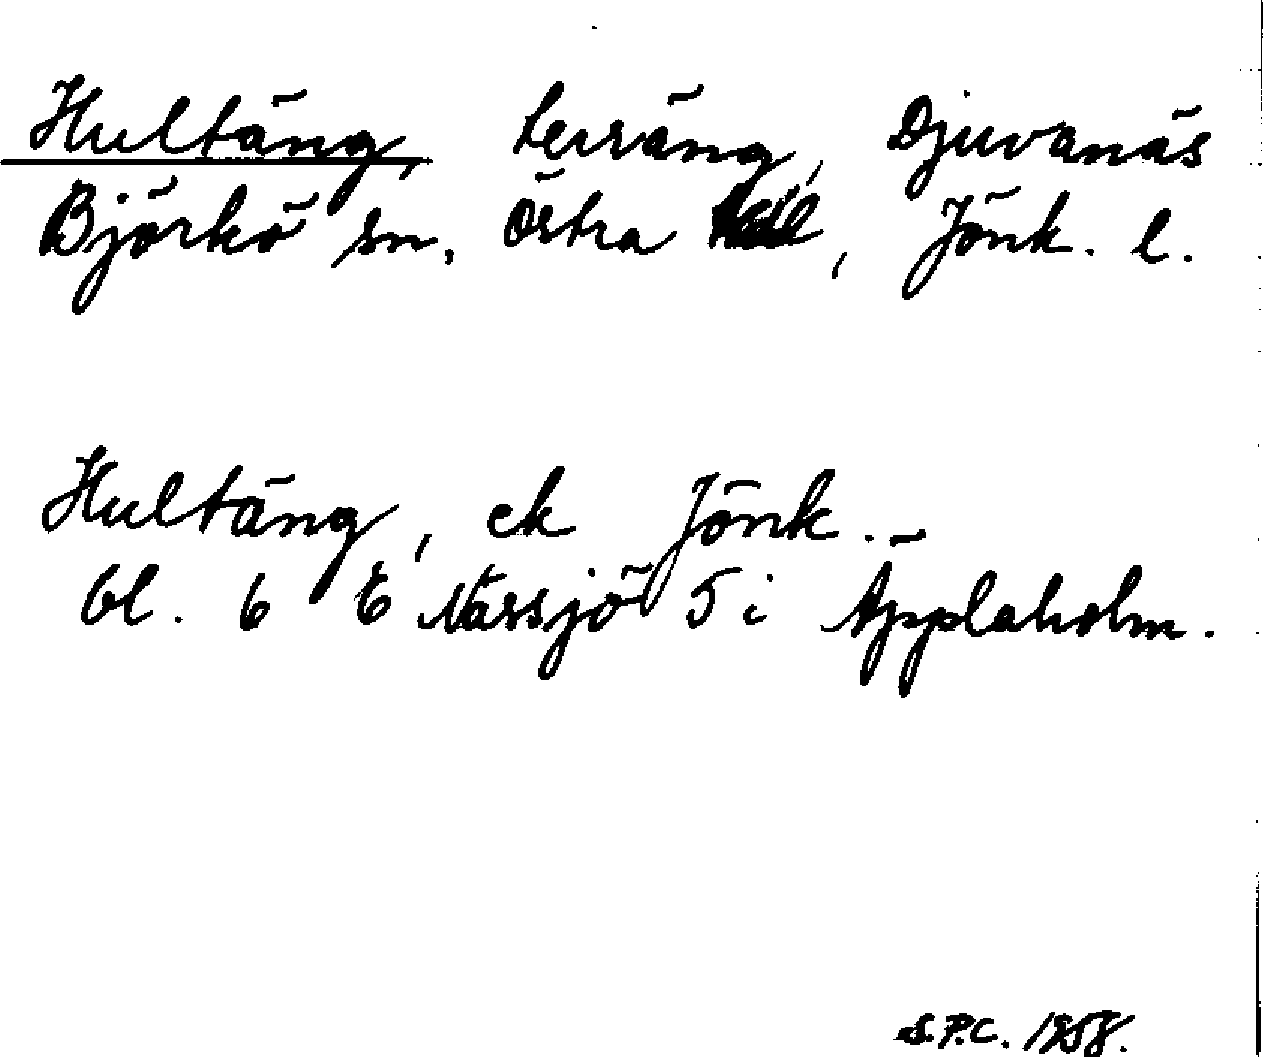 Hultäng, terräng, Djuvanäs
Björkö sn, Östra , Jönk. l.
Hultäng, ek Jönk.
bl. 6 E Nässjö 5 i Äpplaholm.
S.P.C. 1958.